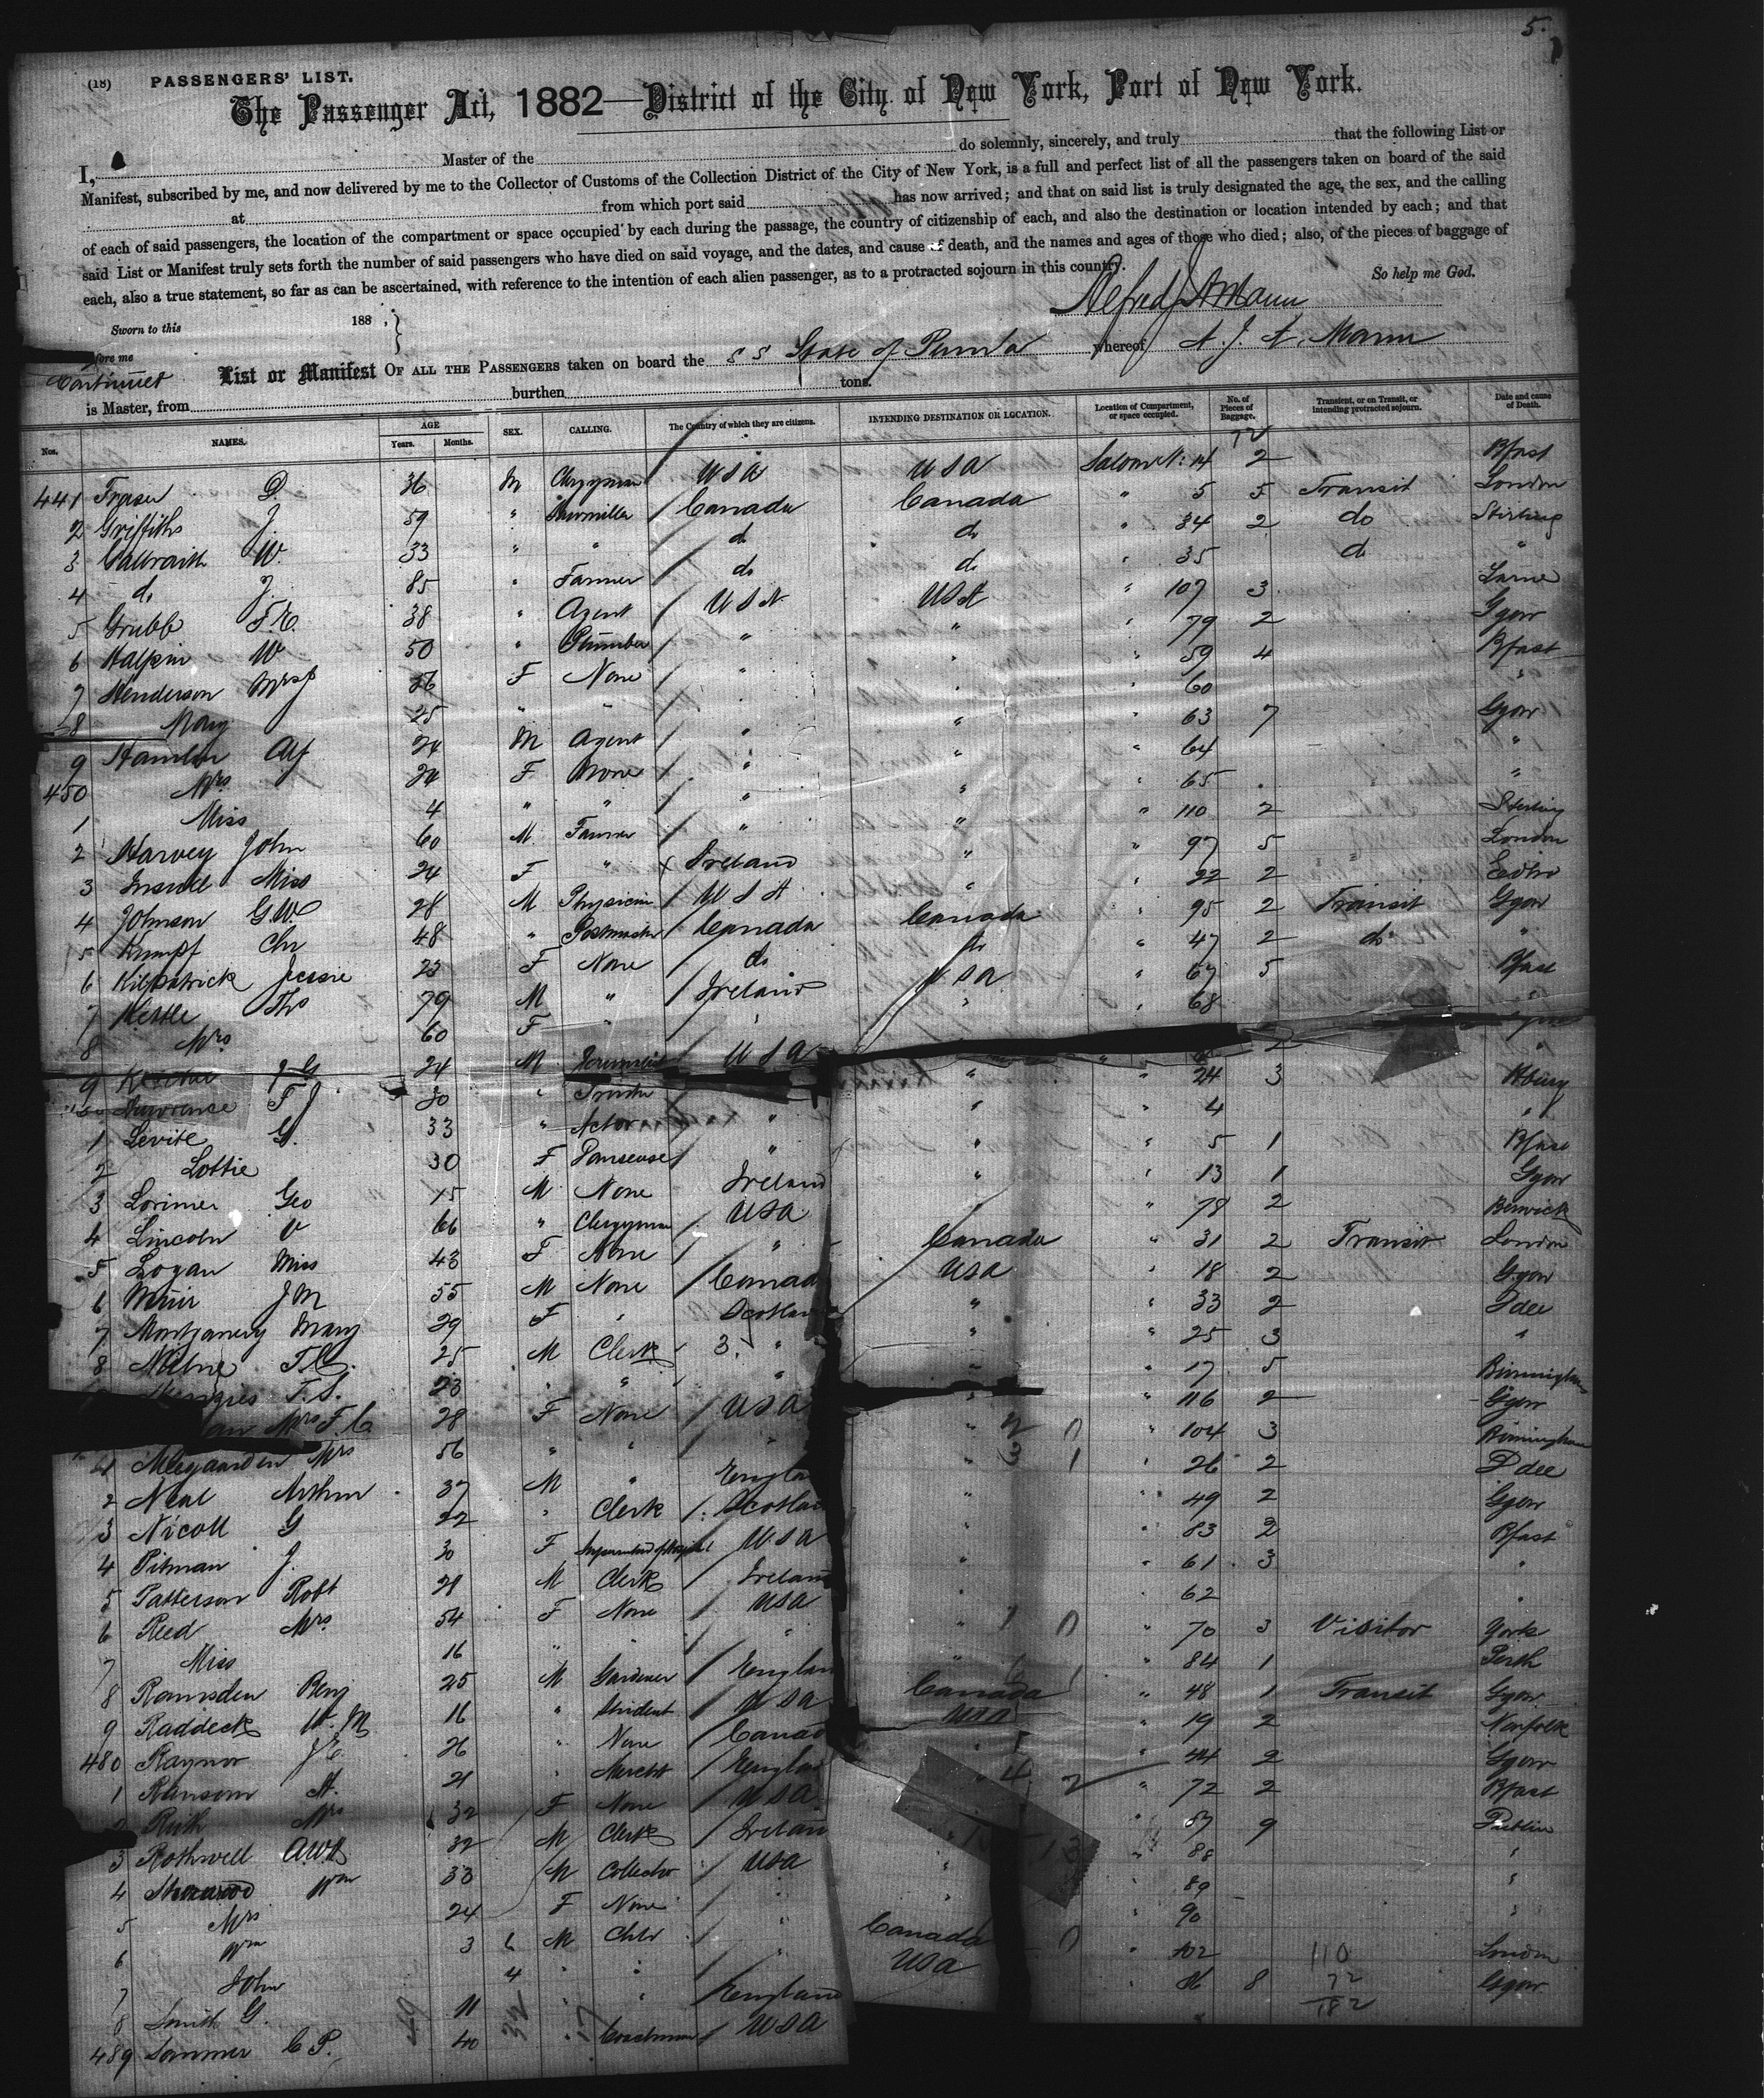 5.
(18) PASSENGERS' LIST.
The Passenger Act, 1882—District of the City of New York, Port of New York.
I, Master of the do solemnly, sincerely, and truly that the following List or
Manifest, subscribed by me, and now delivered by me to the Collector of Customs of the Collection District of the City of New York, is a full and perfect list of all the passengers taken on board of the said
at from which port said has now arrived; and that on said list is truly designated the age, the sex, and the calling
of each of said passengers, the location of the compartment or space occupied by each during the passage, the country of citizenship of each, and also the destination or location intended by each; and that
said List or Manifest truly sets forth the number of said passengers who have died on said voyage, and the dates, and cause of death, and the names and ages of those who died; also, of the pieces of baggage of
each, also a true statement, so far as can be ascertained, with reference to the intention of each alien passenger, as to a protracted sojourn in this country. So help me God.
Alfred J A Mann
Sworn to this 188 ,
fore me
Continued List or Manifest OF ALL THE PASSENGERS taken on board the S S State of whereof A. J. A. Mann
is Master, from burthen tons.
Nos. NAMES. AGE Years. Months. SEX. CALLING. The Country of which they are citizens. INTENDING DESTINATION OR LOCATION. Location of Compartment, or space occupied. No. of Pieces of Baggage. Transient, or on Transit, or intending protracted sojourn. Date and cause of Death.
441 Fraser D. 36 M Clergyman USA USA Saloon No: 14 2 Bfast
2 Griffiths J. 59 " Sawmiller Canada Canada " 5 5 Transit London
3 Galbraith W. 33 " " do do " 34 2 do Stirling
4 do J. 85 " Farmer do do " 35 do "
5 Grubb 38 " Agent USA USA " 107 3 Larne
6 Halpin W 50 " Plumber " " " 79 2 Ggow
7 Henderson Mrs J 56 F None " " " 59 4 Bfast
8 Mary 25 " " " " " 60 "
9 Hamlin Alf 24 M Agent " " " 63 7 Ggow
450 Mrs 24 F None " " " 64 "
1 Miss 4 " " " " " 65 "
2 Harvey John 60 M Farmer " " " 110 2 Stirling
3 Miss 24 F " Ireland " " 97 5 London
4 Johnson G.W. 28 M Physician USA " " 22 2 Edbro
5 Kumpf Chr 48 " Postmaster Canada Canada " 95 2 Transit Ggow
6 Kilpatrick Jessie 23 F None do do " 47 2 do "
7 Kettle Thos 79 M " Ireland USA " 67 5 Bfast
8 Mrs 60 F " " " " 68
9 J G 24 M USA 2 "
Lawrence F J 30 " " " " 24 3
1 Levite G. 33 " Actor " " " 4 "
2 Lottie 30 F Danseuse " " " 5 1 Bfast
3 Lorimer Geo 15 M None Ireland " " 13 1 Ggow
4 Lincoln V 66 " Clergyman USA " " 78 2 Berwick
5 Logan Miss 43 F None " Canada " 31 2 Transit London
6 Muir J M 55 M None Canad USA " 18 2 Ggow
7 Montgomery Mary 29 F " Scotland " " 33 2 Ddee
8 Milne 25 M Clerk 3. " " " 25 3 "
Menzies T.S. 23 " " " " " 17 5 Birmingham
an Mrs F.C. 28 F None USA " 2 0 " 116 2 Ggow
Mrs 56 " " " " 3 1 " 104 3 Birmingham
2 Neal Arthur 37 M " Engla " " 26 2 Ddee
3 Nicoll G 22 " Clerk Scotlan " " 49 2 Ggow
4 Pitman J. 30 F USA " " 83 2 Bfast
5 Patterson Robt 21 M Clerk Irelan " " 61 3 "
6 Reed Mrs 54 F None USA " " 62 "
7 Miss 16 " " " " 7 0 " 70 3 Visitor York
8 Ramsden Benj 25 M Gardener Englan " " 84 1 Perth
9 Raddeck W. M 16 " Student USA Canada " 48 1 Transit Ggow
480 Raynor J E 26 " None Canad USA " 19 2 Norfolk
1 Ransom A. 21 " Mercht Englan " 4 2 " 44 2 Ggow
2 Ruth Mrs 32 F None USA " 72 2 Bfast
3 Rothwell AWR 32 M Clerk Irelan " 13 " 87 9 Dublin
4 Wm 33 M Collector USA " " 88 "
5 Mrs 24 F None " " " 89 "
6 Wm 3 6 M Chld " " " 90 "
7 John 4 " " " Canada 0 " 102 110 London
8 Smith G. 11 " " England USA " 86 8 72 Ggow
489 Sommer C P. 40 " Coachman USA 182
49 32 17